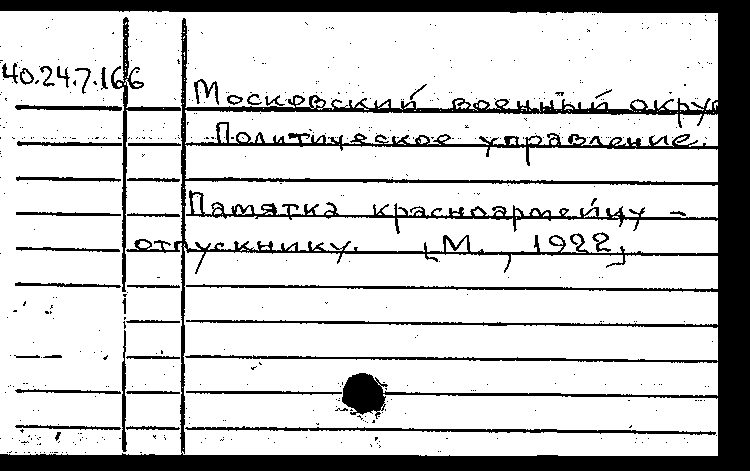 40.24.7.166
Московский военный округ
Политическое управление.
Памятка красноармейцу -
отпускнику. [М., 1922]